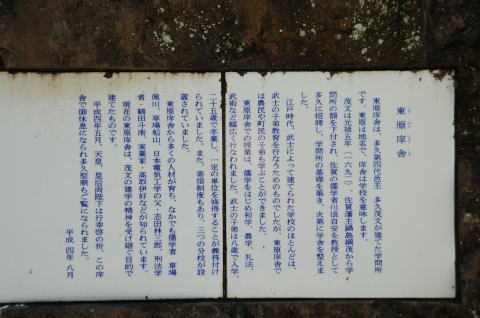 東原庠舎
東原庠舎は、多久第四代邑主 多久茂文が建てた学問所
です。東原は地名で、庠舎は学校を意味します。
茂文は元禄五年（一六九二）、佐賀藩主鍋島綱茂から学
問所の額を下付され、佐賀の儒学者川浪自安を教授として
多久に招聘し、学問所の基礎を築き、次第に学舎を整えま
した。
江戸時代、武士によって建てられた学校のほとんどは、
武士の子弟教育を行なうためのものでしたが、東原庠舎で
は農民や町民の子弟も学ぶことができました。
東原庠舎での授業は、儒学をはじめ和学、農学、礼法、
武術など幅広く行なわれました。武士の子弟は八歳で入学、
二十五歳で卒業し、一定の単位を修得することが義務付け
られていました。また、寄宿制度もあり、三つの分校が設
置されていました。
東原庠舎から多くの人材が育ち、なかでも儒学者 草場
佩川、草場船山、日本電気工学の父、志田林三郎、刑法学
者・鶴田斗南、実業家・高取伊好などが知られています。
現在の東原庠舎は、茂文の建学の精神を受け継ぐ目的で
建てたものです。
平成四年五月、天皇、皇后両陛下は行幸啓の折、この庠
舎で御休息になられ孔子聖廟もご覧になられました。
平成四年八月